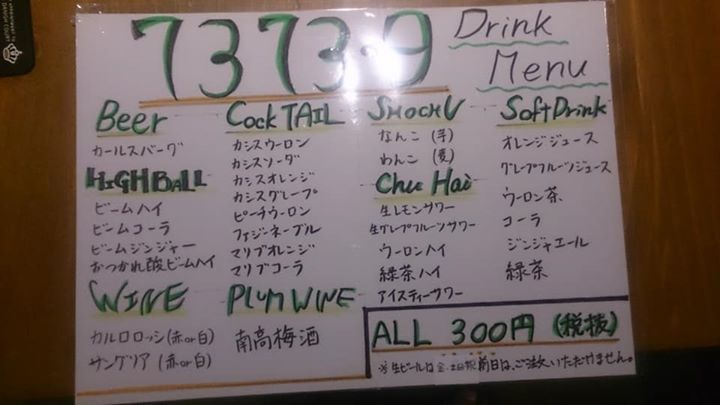 7373·9
Drink
Menu
Beer
カールスバーグ
HIGHBALL
ビームハイ
ビームコーラ
ビームジンジャー
おつかれ酸ビームハイ
WINE
カルロロッシ(赤or白)
サングリア(赤or白)
CockTAIL
カシスウーロン
カシスソーダ
カシスオレンジ
カシスグレープ
ピーチウーロン
ファジーネーブル
マリブオレンジ
マリブコーラ
PLUM WINE
南高梅酒
SHOCHU
なんこ(芋)
わんこ(麦)
Chu Hai
生レモンサワー
生グレープフルーツサワー
ウーロンハイ
緑茶ハイ
アイスティーサワー
Soft Drink
オレンジジュース
グレープフルーツジュース
ウーロン茶
コーラ
ジンジャエール
緑茶
ALL 300円(税抜)
※生ビールは金・土日祝前日は、ご注文いただけません。